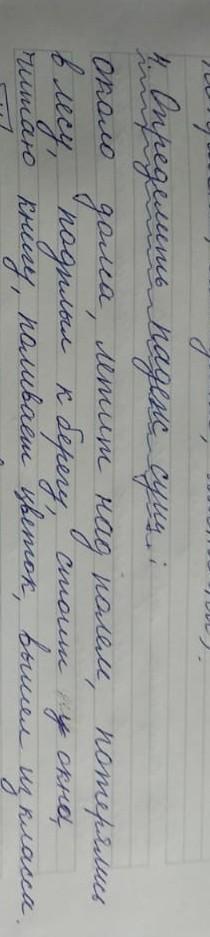 4. Определить падеж сущ.:
около дома, летит над полем, потерялись
в лесу, подплыл к берегу, стоит у окна,
читаю книгу, поливает цветок, вышел из класса.